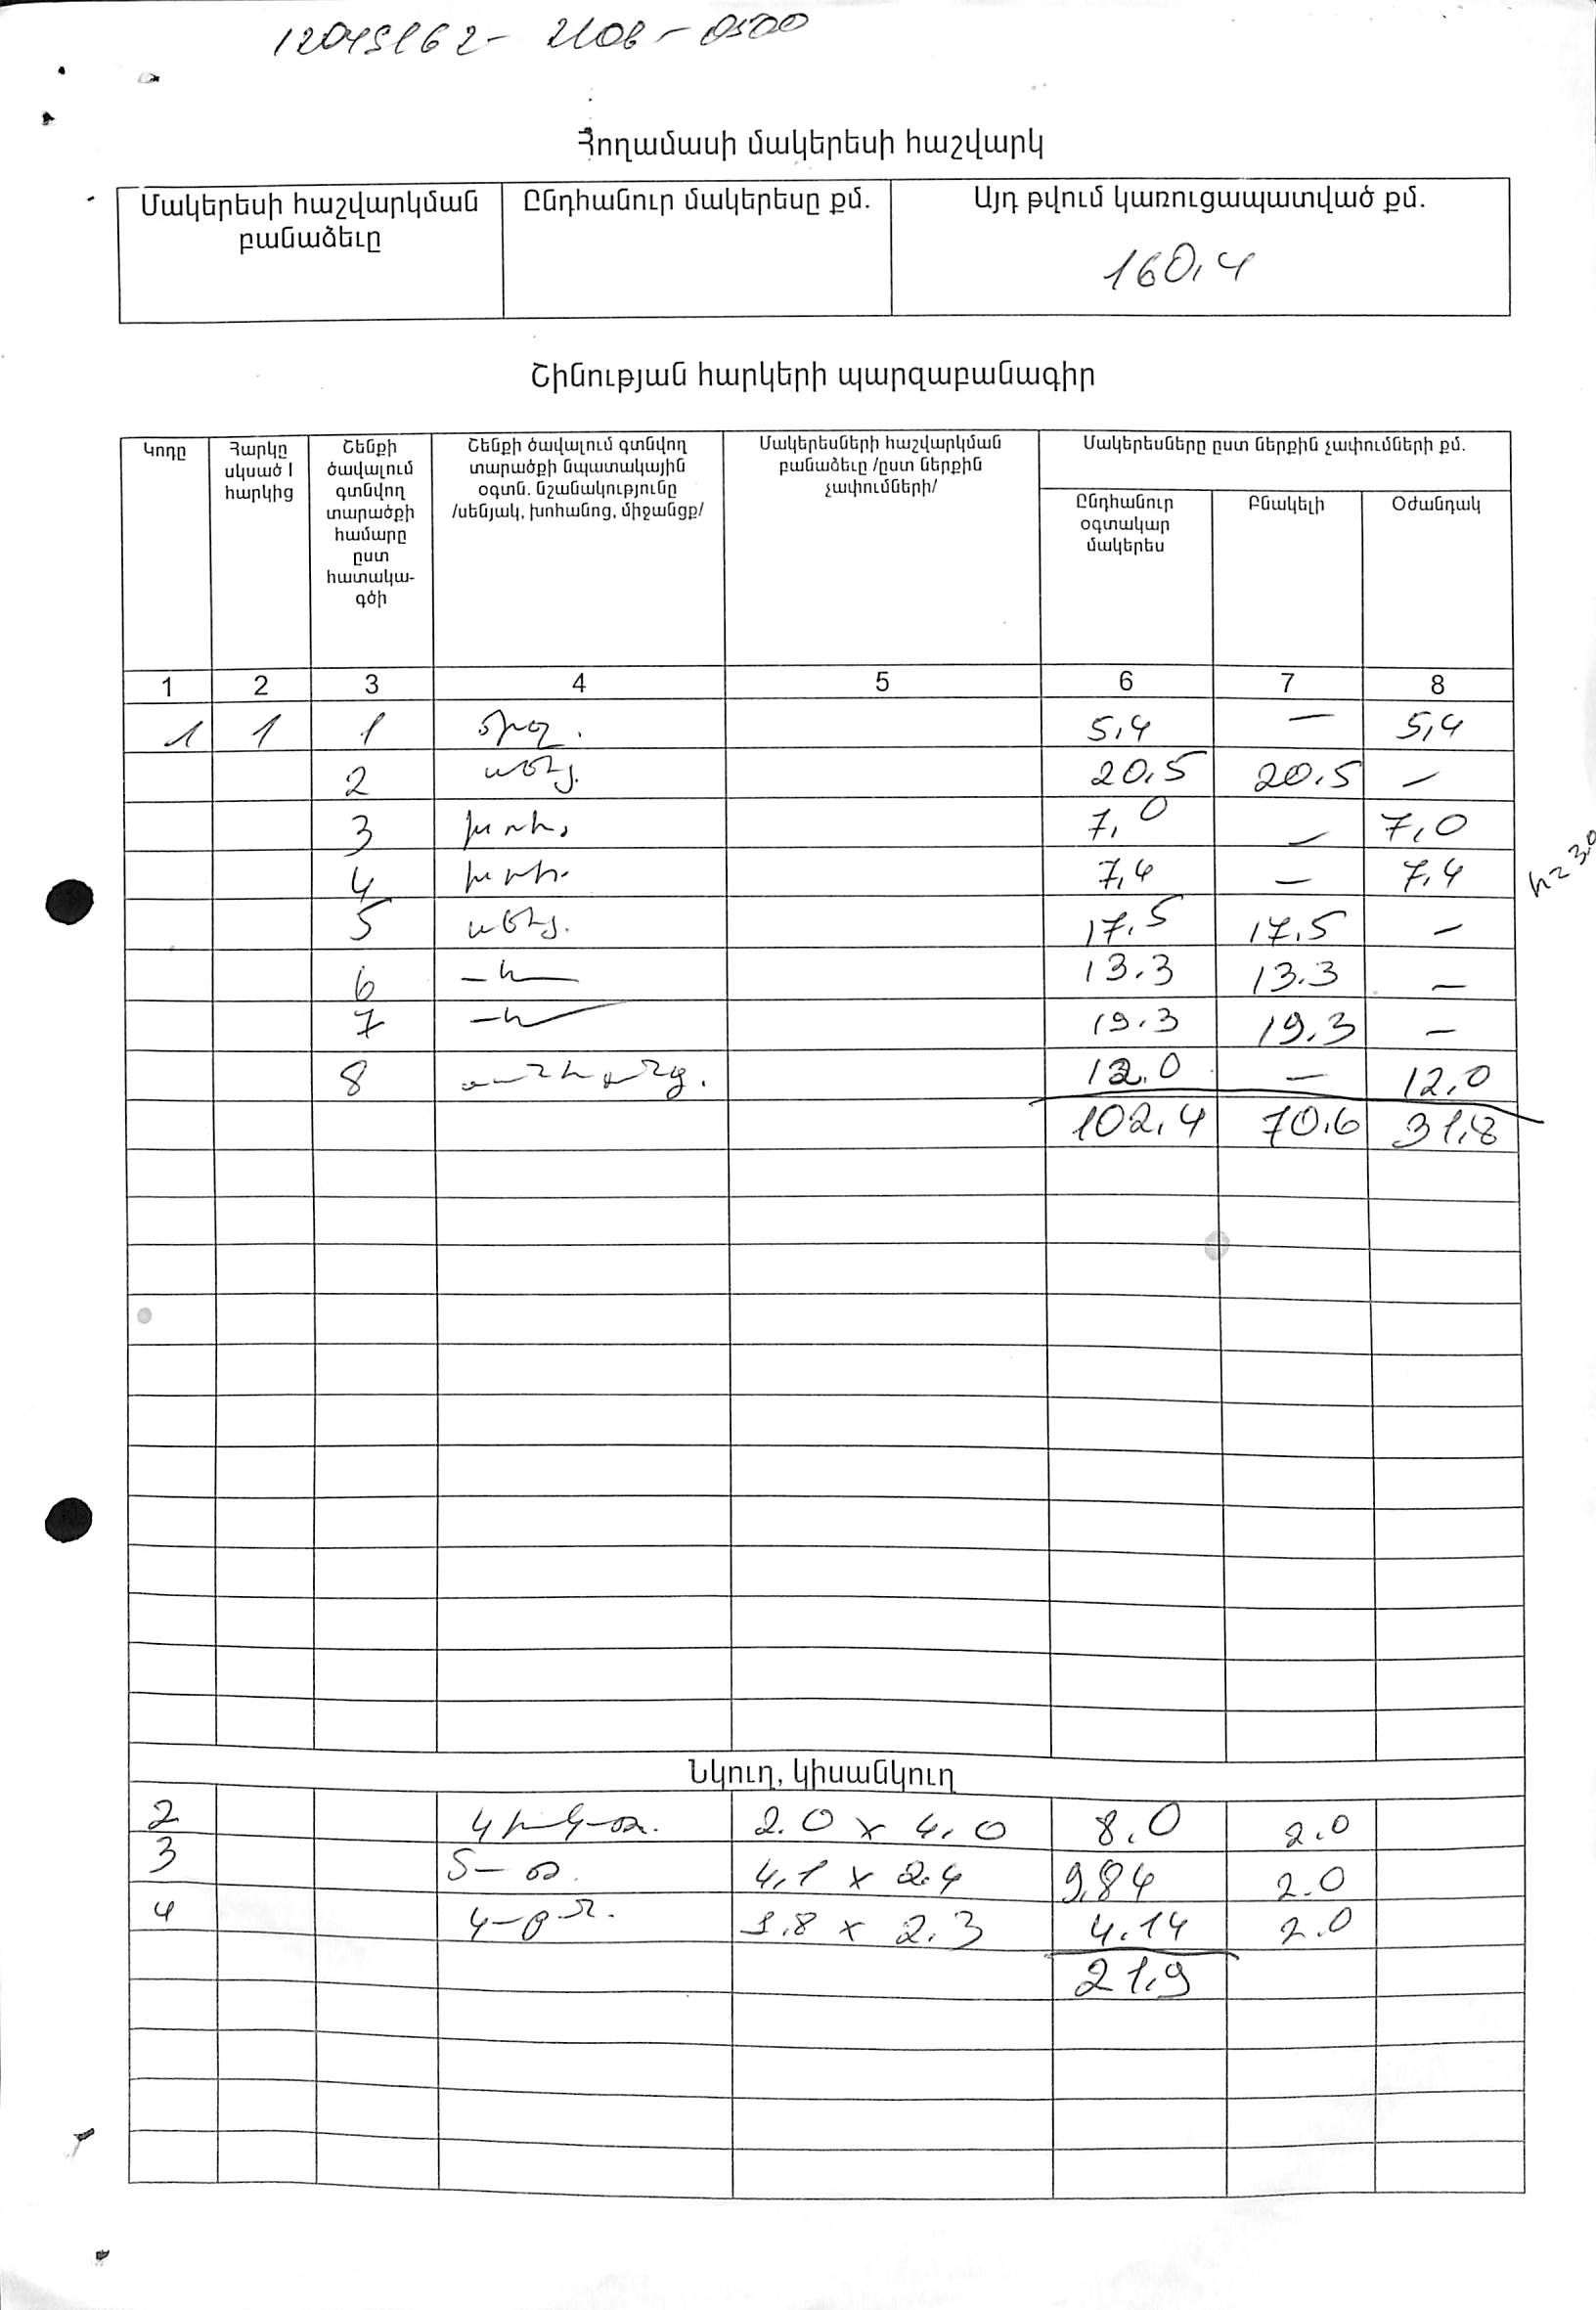 12049162- 2106 - 0500
Հողամասի մակերեսի հաշվարկ
Մակերեսի հաշվարկման բանաձեւը Ընդհանուր մակերեսը քմ. Այդ թվում կառուցապատված քմ.
160,4
Շինության հարկերի պարզաբանագիր
Կոդը
Հարկը սկսած I հարկից
Շենքի ծավալում գտնվող տարածքի համարը ըստ հատակա-գծի
Շենքի ծավալում գտնվող տարածքի նպատակային օգտն. նշանակությունը /սենյակ, խոհանոց, միջանցք/
Մակերեսների հաշվարկման բանաձեւը /ըստ ներքին չափումների/
Մակերեսները ըստ ներքին չափումների քմ.
Ընդհանուր օգտակար մակերես
Բնակելի
Օժանդակ
1 2 3 4 5 6 7 8
1 1 1 5,4 — 5,4
2 սենյ. 20.5 20.5 —
3 խոհ. 7,0 — 7,0
4 խոհ. 7,4 — 7,4
5 սենյ. 17.5 17.5 —
6 —〃— 13.3 13.3 —
7 —〃— 19.3 19.3 —
8 12.0 — 12.0
102,4 70.6 31,8
h=3.0
Նկուղ, կիսանկուղ
2 2.0 x 4.0 8.0 2.0
3 4,1 x 2.4 9,84 2.0
4 1.8 x 2.3 4.14 2.0
21,9